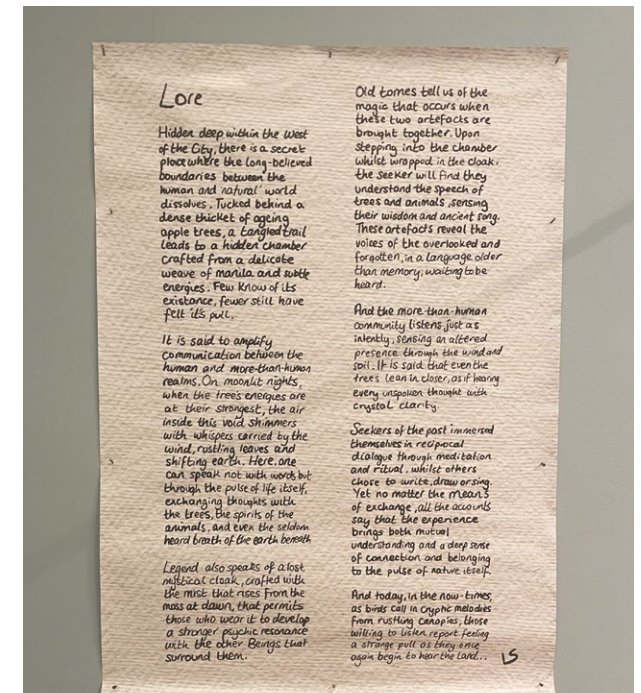 Lore
Hidden deep within the West
of the City, there is a secret
place where the long-believed
boundaries between the
human and 'natural' world
dissolves. Tucked behind a
dense thicket of ageing
apple trees, a tangled trail
leads to a hidden chamber
crafted from a delicate
weave of manila and subtle
energies. Few know of its
existance, fewer still have
felt it's pull.
It is said to amplify
communication between the
human and more-than-human
realms. On moonlit nights,
when the tree's energies are
at their strongest, the air
inside this void shimmers
with whispers carried by the
wind, rustling leaves and
shifting earth. Here, one
can speak not with words but
through the pulse of life itself,
exchanging thoughts with
the trees, the spirits of the
animals, and even the seldom
heard breath of the earth beneath
Legend also speaks of a lost
mystical cloak, crafted with
the mist that rises from the
moss at dawn, that permits
those who wear it to develop
a stronger psychic resonance
with the other Beings that
surround them.
Old tomes tell us of the
magic that occurs when
these two artefacts are
brought together. Upon
stepping into the chamber
whilst wrapped in the cloak,
the seeker will find they
understand the speech of
trees and animals, sensing
their wisdom and ancient song.
These artefacts reveal the
voices of the overlooked and
forgotten, in a language older
than memory, waiting to be
heard.
And the more-than-human
community listens just as
intently, sensing an altered
presence through the wind and
soil. It is said that even the
trees lean in closer, as if hearing
every unspoken thought with
crystal clarity
Seekers of the past immersed
themselves in reciprocal
dialogue through meditation
and ritual, whilst others
chose to write, draw or sing.
Yet no matter the means
of exchange, all the accounts
say that the experience
brings both mutual
understanding and a deep sense
of connection and belonging
to the pulse of nature itself.
And today, in the now-times,
as birds call in cryptic melodies
from rustling canopies, those
willing to listen report feeling
a strange pull as they once
again begin to hear the Land...
LS